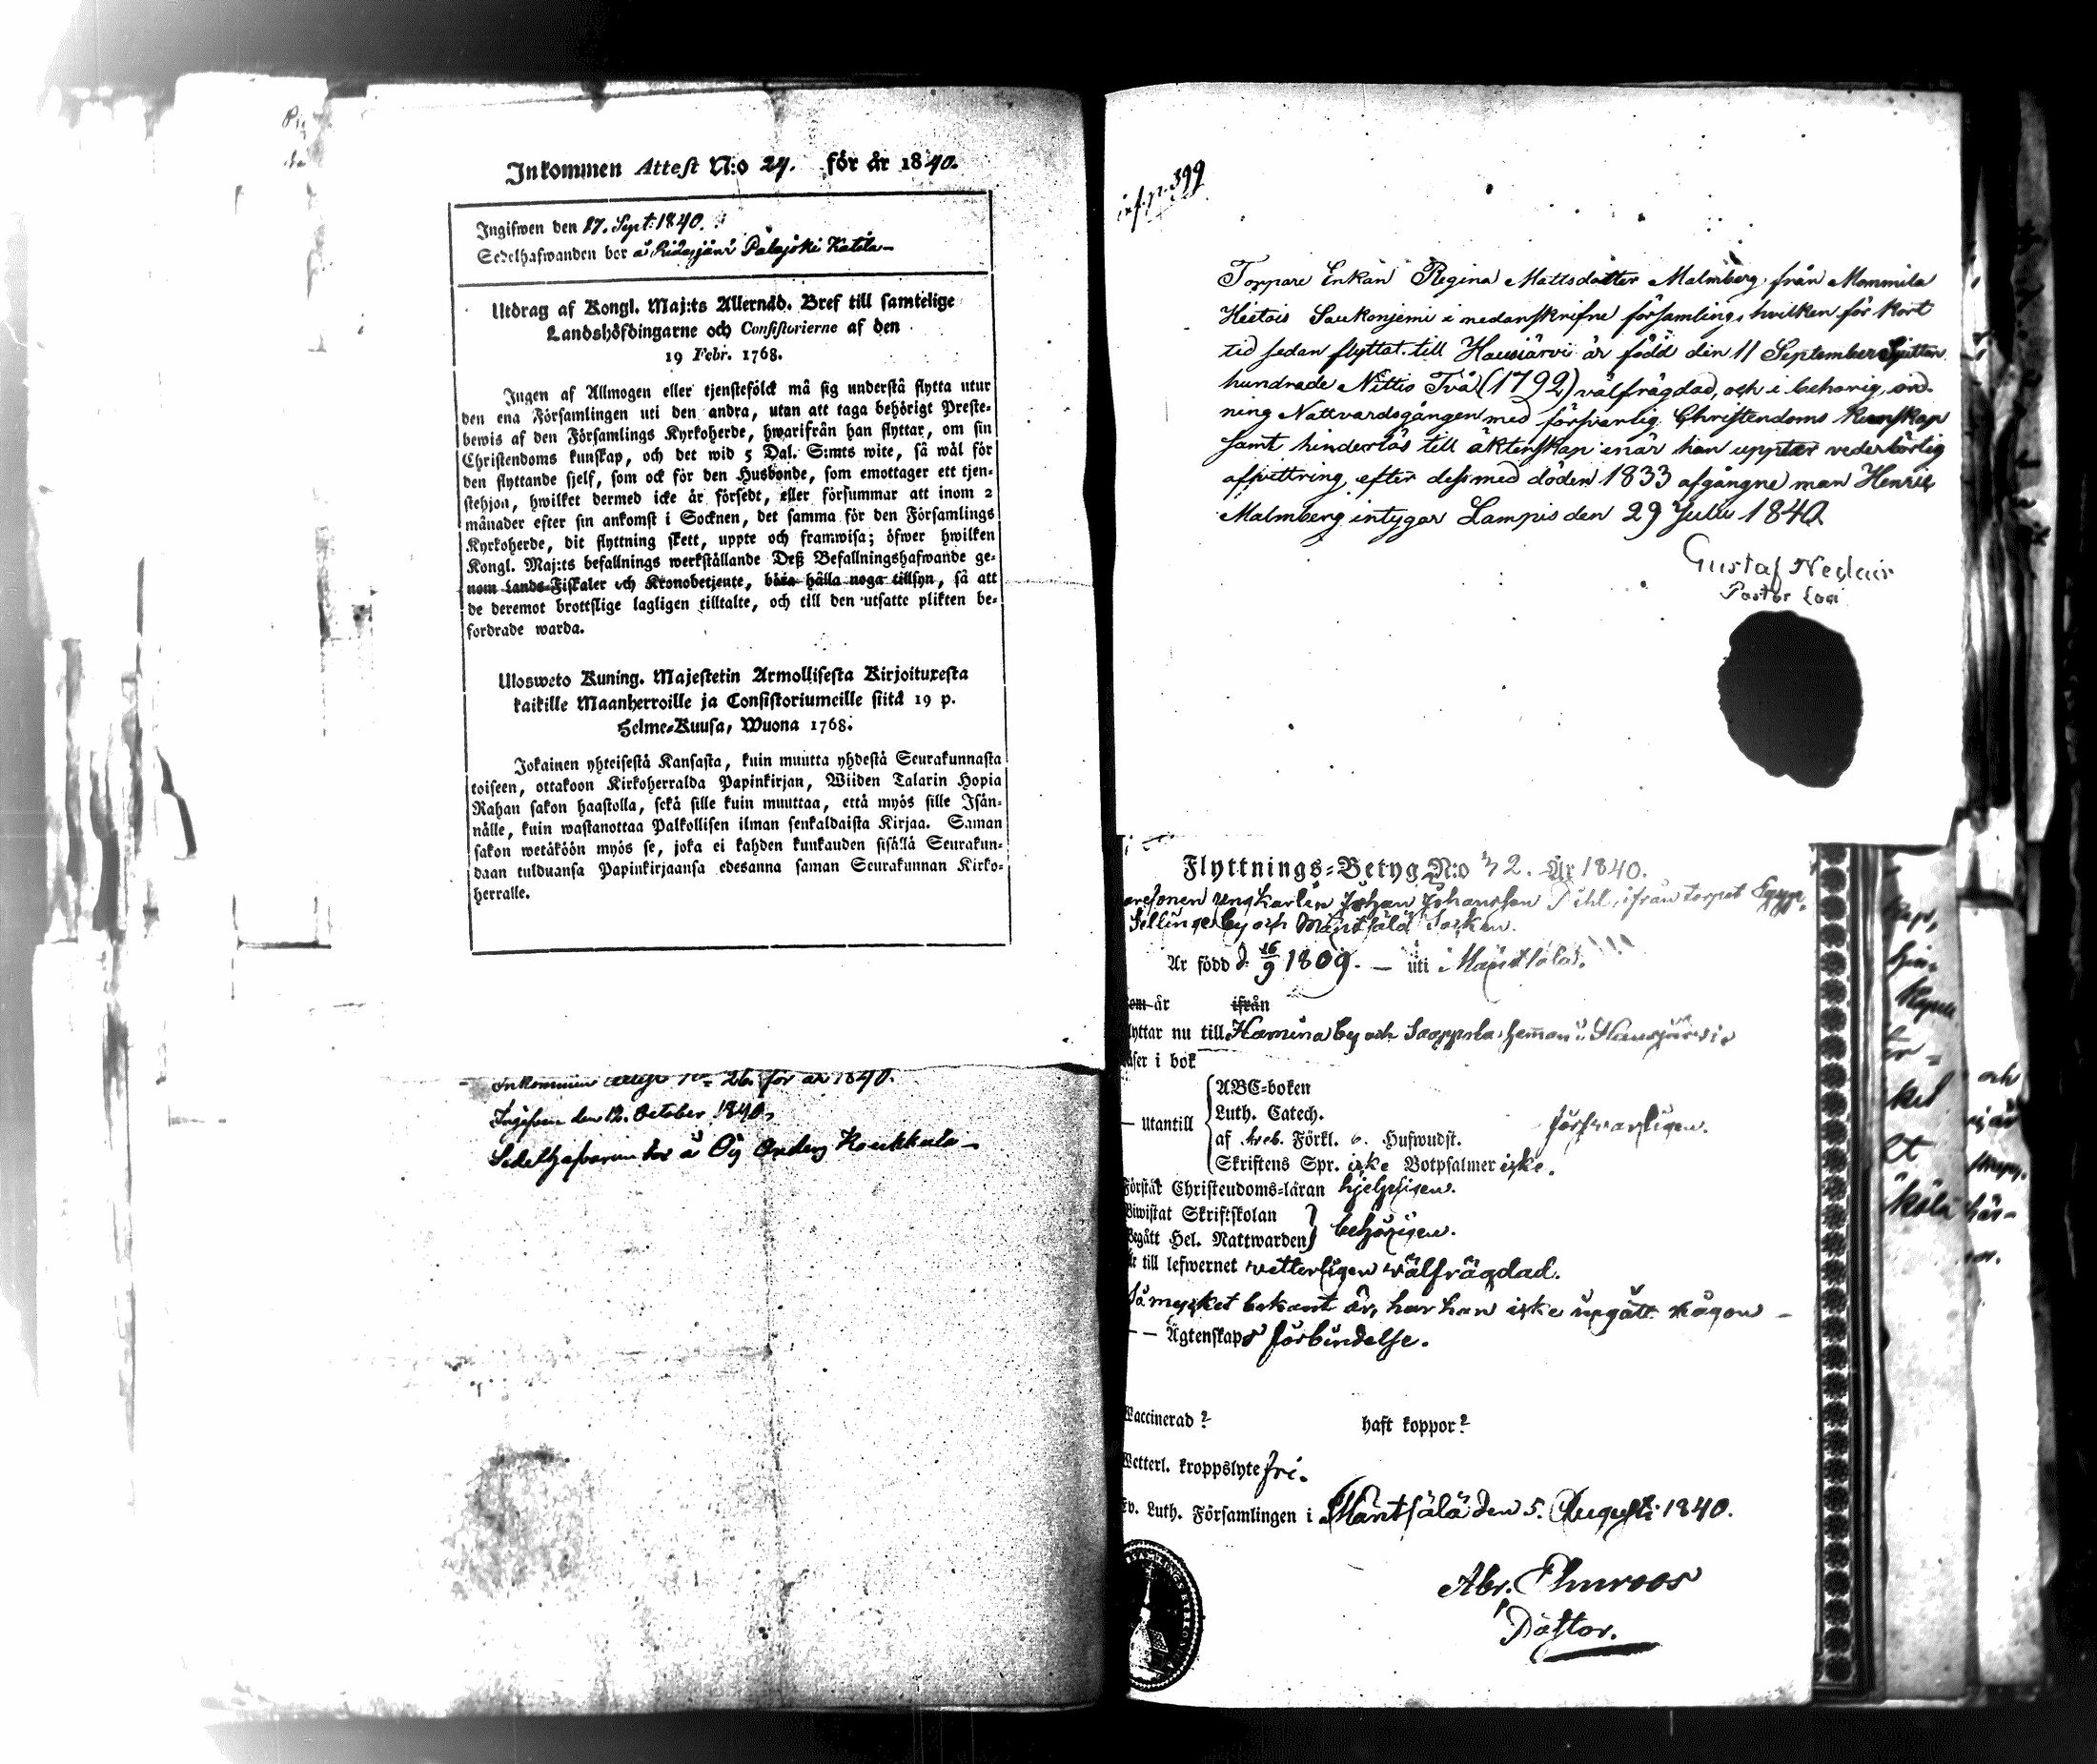 Inkommen Attest N:o 24. för år 1840.
Ingifwen den 17. Sept: 1840.
Sedelhafwanden bor å Ridasjärvi Palojoki Katila
Utdrag af Kongl. Maj:ts Allernåd. Bref till samtelige
Landshöfdingarne och Consistorierne af den
19 Febr. 1768.
Ingen af Allmogen eller tjenstefölck må sig understå flytta utur
den ena Församlingen uti den andra, utan att taga behörigt Preste-
bewis af den Församlings Kyrkoherde, hwarifrån han flyttar, om sin
Christendoms kunskap, och det wid 5 Dal. S:mts wite, så wäl för
den flyttande sjelf, som ock för den Husbonde, som emottager ett tjen-
stehjon, hwilket dermed icke är försedt, eller försummar att inom 2
månader efter sin ankomst i Socknen, det samma för den Församlings
Kyrkoherde, dit flyttning skett, uppte och framwisa; öfwer hwilken
Kongl. Maj:ts befallnings werkställande Deß Befallningshafwande ge-
nom Lands-Fiskaler och Kronobetjente, böra hålla noga tillsyn, så att
de deremot brottslige lagligen tilltalte, och till den utsatte plikten be-
fordrade warda.
Ulosweto Kuning. Majestetin Armollisesta Kirjoituxesta
kaikille Maanherroille ja Consistoriumeille siitä 19 p.
Helme-Kuusa, Wuona 1768.
Jokainen yhteisestä Kansasta, kuin muutta yhdestä Seurakunnasta
toiseen, ottakoon Kirkoherralda Papinkirjan, Wiiden Talarin Hopia
Rahan sakon haastolla, sekä sille kuin muuttaa, että myös sille Isän-
nälle, kuin wastanottaa Palkollisen ilman senkaldaista Kirjaa. Saman
sakon wetäköön myös se, joka ei kahden kuukauden sisällä Seurakun-
daan tulduansa Papinkirjaansa edesanna saman Seurakunnan Kirko-
herralle.
Inkommen No 26 för år 1840.
Ingifven den 12. October 1840.
Sedelhafvaren bor å Oij Anders Koukkula
inf. p. 399
Torpare Enkan Regina Mattsdotter Malmberg från Mommila
Hietois Saukonjemi i nedanskrifne församling, hvilken för kort
tid sedan flyttat till Hausjärvi är född den 11 September Sjutton
hundrade Nittio Två (1792) välfrägdad, och i behörig ord-
ning Nattvardsgången med försvarlig Christendoms kunskap
samt hinderlös till äktenskap enär hon upptar vederbörlig
afvittring efter dess med döden 1833 afgångne man Henric
Malmberg intygar Lampis den 29 Julii 1840
Gustaf
Pastor Loci
Flyttnings-Betyg N:o 32. År 1840.
Ungkarlen Johan Johansson Pihl, ifrån torpet
Sellinge by och Mäntsälä Socken.
Är född d. 16/9 1809. — uti Mäntsälä.
som är ifrån
flyttar nu till Karmina by och hemman i Hausjärvi
läser i bok
— Utantill
ABC-boken
Luth. Catech.
af Sveb. Förkl. o. Hufwudst. försvarligen.
Skriftens Spr. icke Botpsalmer icke.
Förstår Christendoms-läran hjelpligen.
Biwistat Skriftskolan
Begått Hel. Nattwarden behörigen.
Är till lefwernet vetterligen välfrägdad.
Så mycket bekant är, har han icke ingått någon —
— — Ägtenskaps förbindelse.
Waccinerad? haft koppor?
Wetterl. kroppslyte fri.
Ev. Luth. Församlingen i Mäntsälä den 5. Augusti 1840.
Abr. Elmroos
Pastor.